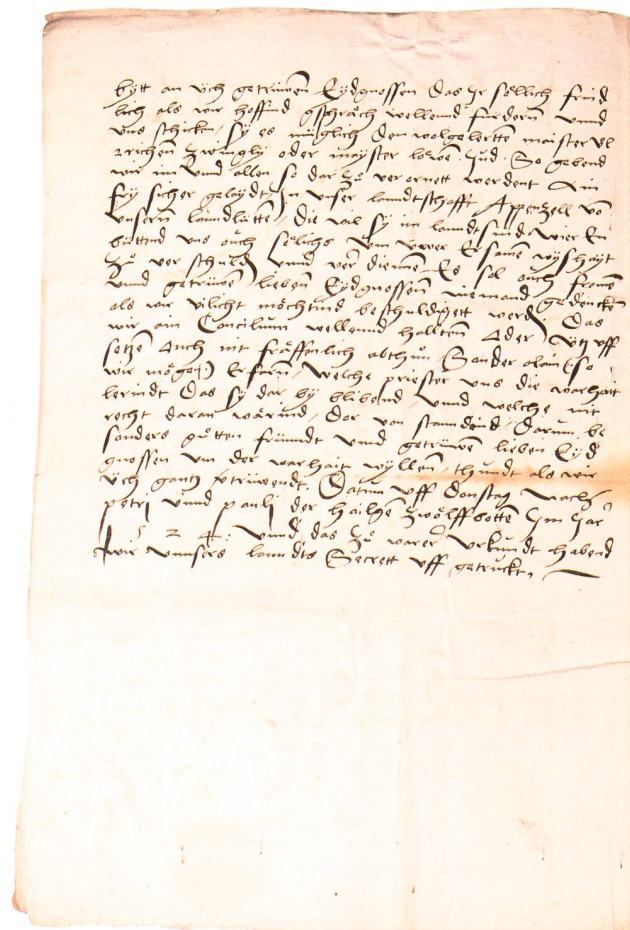 bytt an üch getrüwen Eydgnossen Das Ir söllich frind
lich als wir hoffind gschräch wellend fürdern unnd
uns schicken, sy es müglich Den wolgelerten maister Ul
richen Zwingly oder mayster lewen Jud. So gebend
wir im unnd allen so dar zu verornett werdent ain
fry sicher gelaydt, In unser lanndtschafft Appenzell vo
unsern lanndlütten, Die wil sy im lanndt sind, wier En
büttend uns ouch sölichs um uwer Ersamen wyshayt
zu ver schulde unnd ver diennen Es sol ouch fromen
unnd getrüwen lieben Eydgnossen niemand gedencken
als wir vilicht möchtind beschuldigett werden, Das
wir ain Concilium wellend hallten Oder ütz uff
setzen Ouch nit fräffenlich abthun, Sonder alain (so
wir mögen) Erfarn, welche priester uns die warhait
lerindt Das sy dar by blibend, unnd welche nit
recht daran wärind, Dor von standind, Darum be
sonders gutten fründt unnd getrüwen lieben Eyd
gnossen um der warhait wyllen, thundt als wir
üch gantz vertrüwendt. Datum uff Donstag nach
petri unnd pauli der hailgen zwölffbotten Im Jar
1 5 2 4. unnd das zu warer urkundt habend
wir unnsers lanndts Secrett uff getruckt,